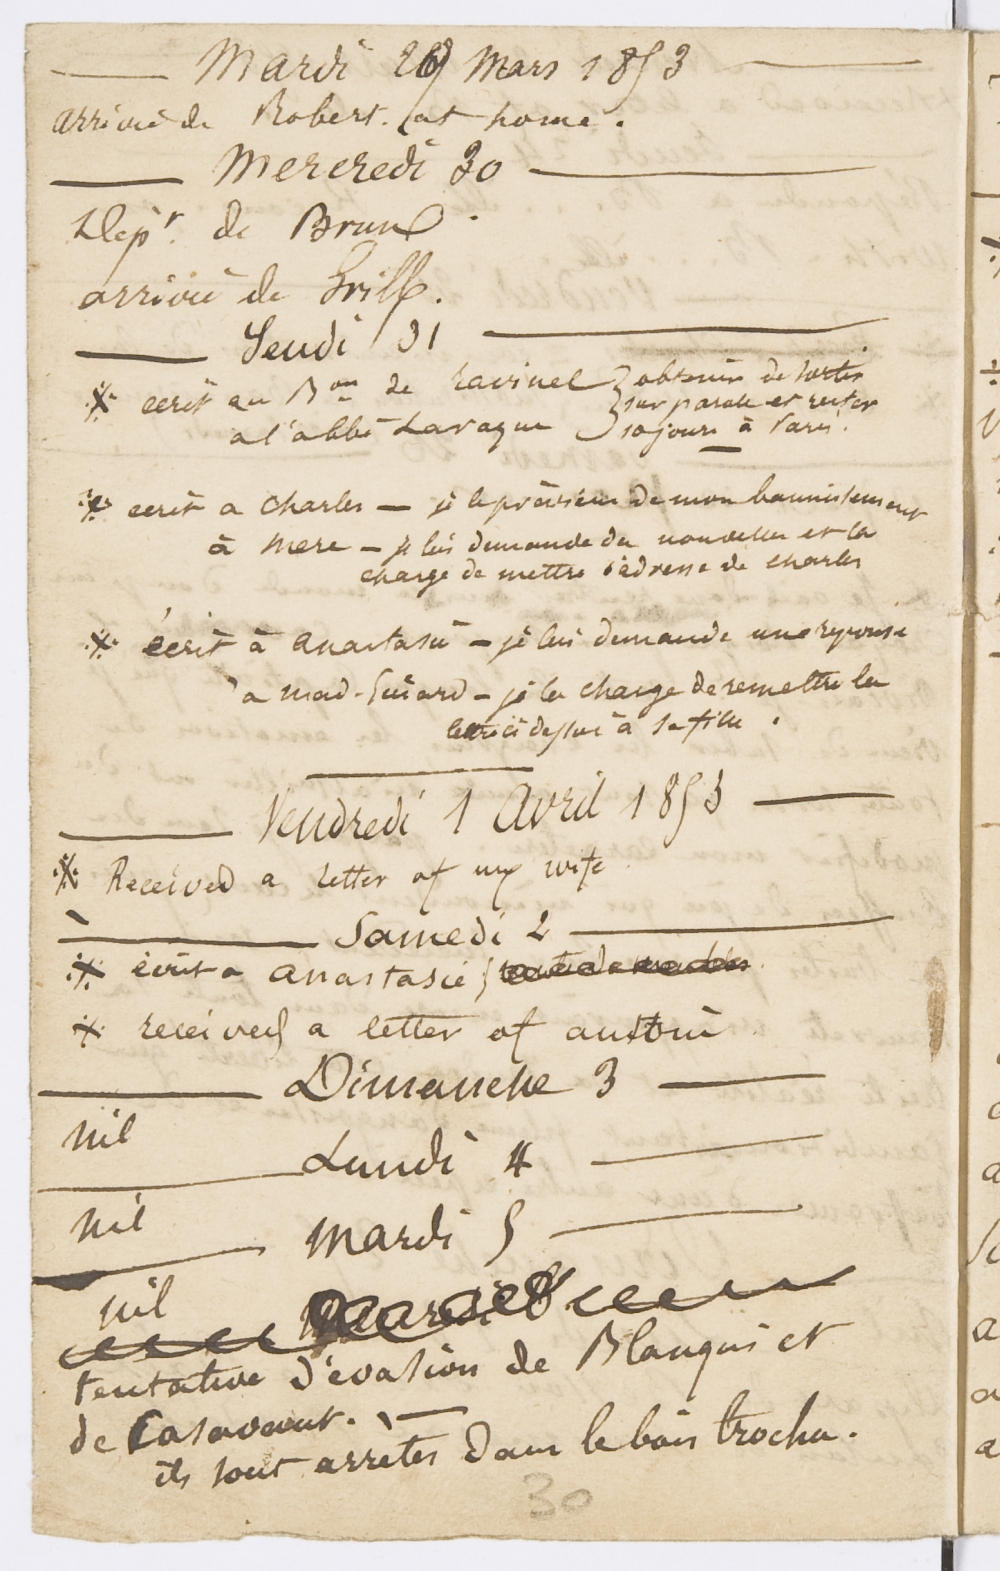 Mardi 29 Mars 1853
arrivée de Robert. at home.
Mercredi 30
Dépt. de Brun
arrivée de Griff.
Jeudi 31
ecrit au Bon de Ravinel } obtenir de sortir
à l'abbé Laraque } sur parole et rester
10 jours à Paris.
ecrit a Charles — je le préviens de mon bannissement
à mere — je lui demande des nouvelles et la
charge de mettre l'adresse de charles
écrit à anastasie — je lui demande une reponse
a mad. — je la charge de remettre la
lettre ci dessus à sa fille.
Vendredi 1 Avril 1853
Received a letter of my wife
Samedi 2
écrit a anastasie
received a letter of antoine
Dimanche 3
nil
Lundi 4
nil
Mardi 5
nil
Mardi
tentative d'évasion de Blanqui et
de Casavant.
ils sont arretés dans le bois trochu.
30